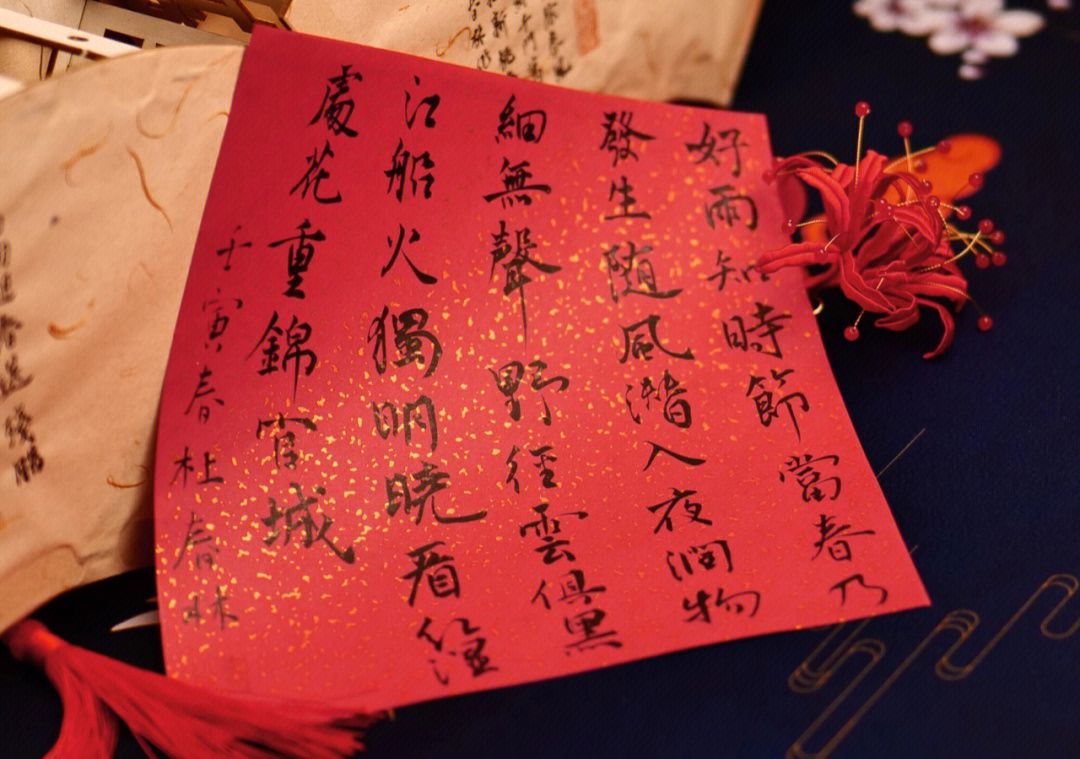 好雨知時節當春乃
發生随風潛入夜潤物
細無聲野徑雲俱黑
江船火獨明曉看紅溼
處花重錦官城
壬寅春杜春